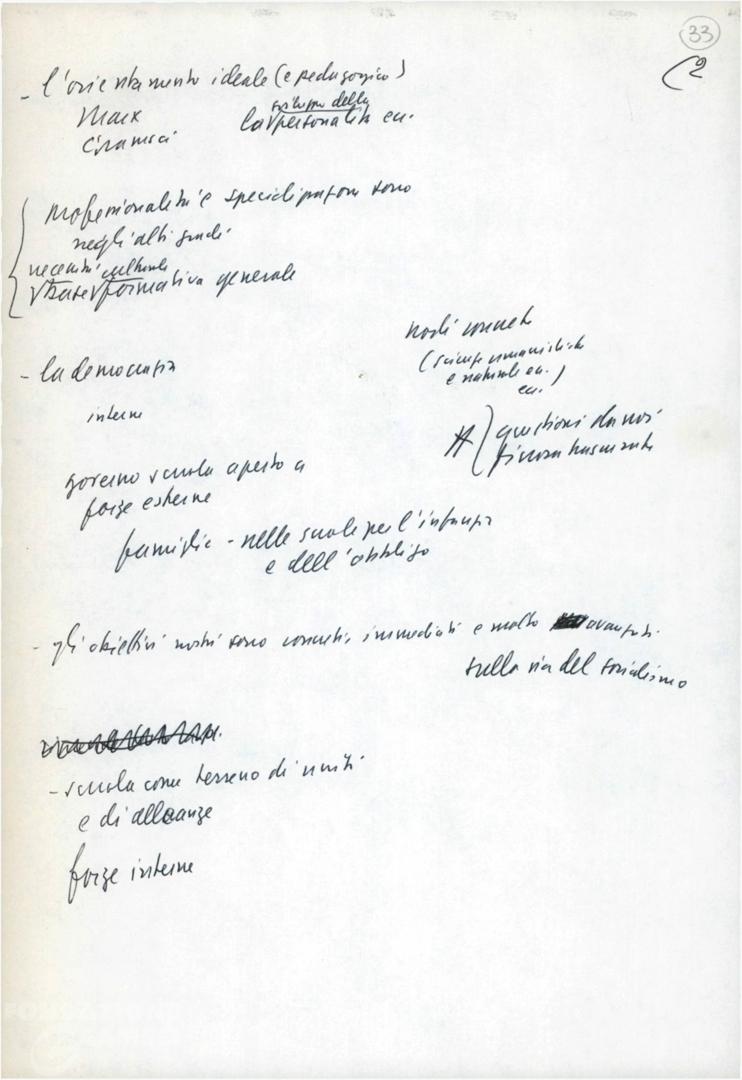 33
2
- l'orientamento ideale (e pedagogico)
Marx
Gramsci
sviluppo della
la personalità ecc.
professionalità e specializzazione sono
negli alti gradi
necessità culturale
base formativa generale
nodi concreti
(scienze umanistiche
e naturali ecc.
ecc.)
- la democrazia
interna
questioni da noi
finora trascurate
governo scuola aperto a
forze esterne
famiglie - nelle scuole per l'infanzia
e dell'obbligo
- gli obiettivi nostri sono concreti, immediati e molto avanzati
sulla via del socialismo
- scuola come terreno di unità
e di alleanze
forze interne